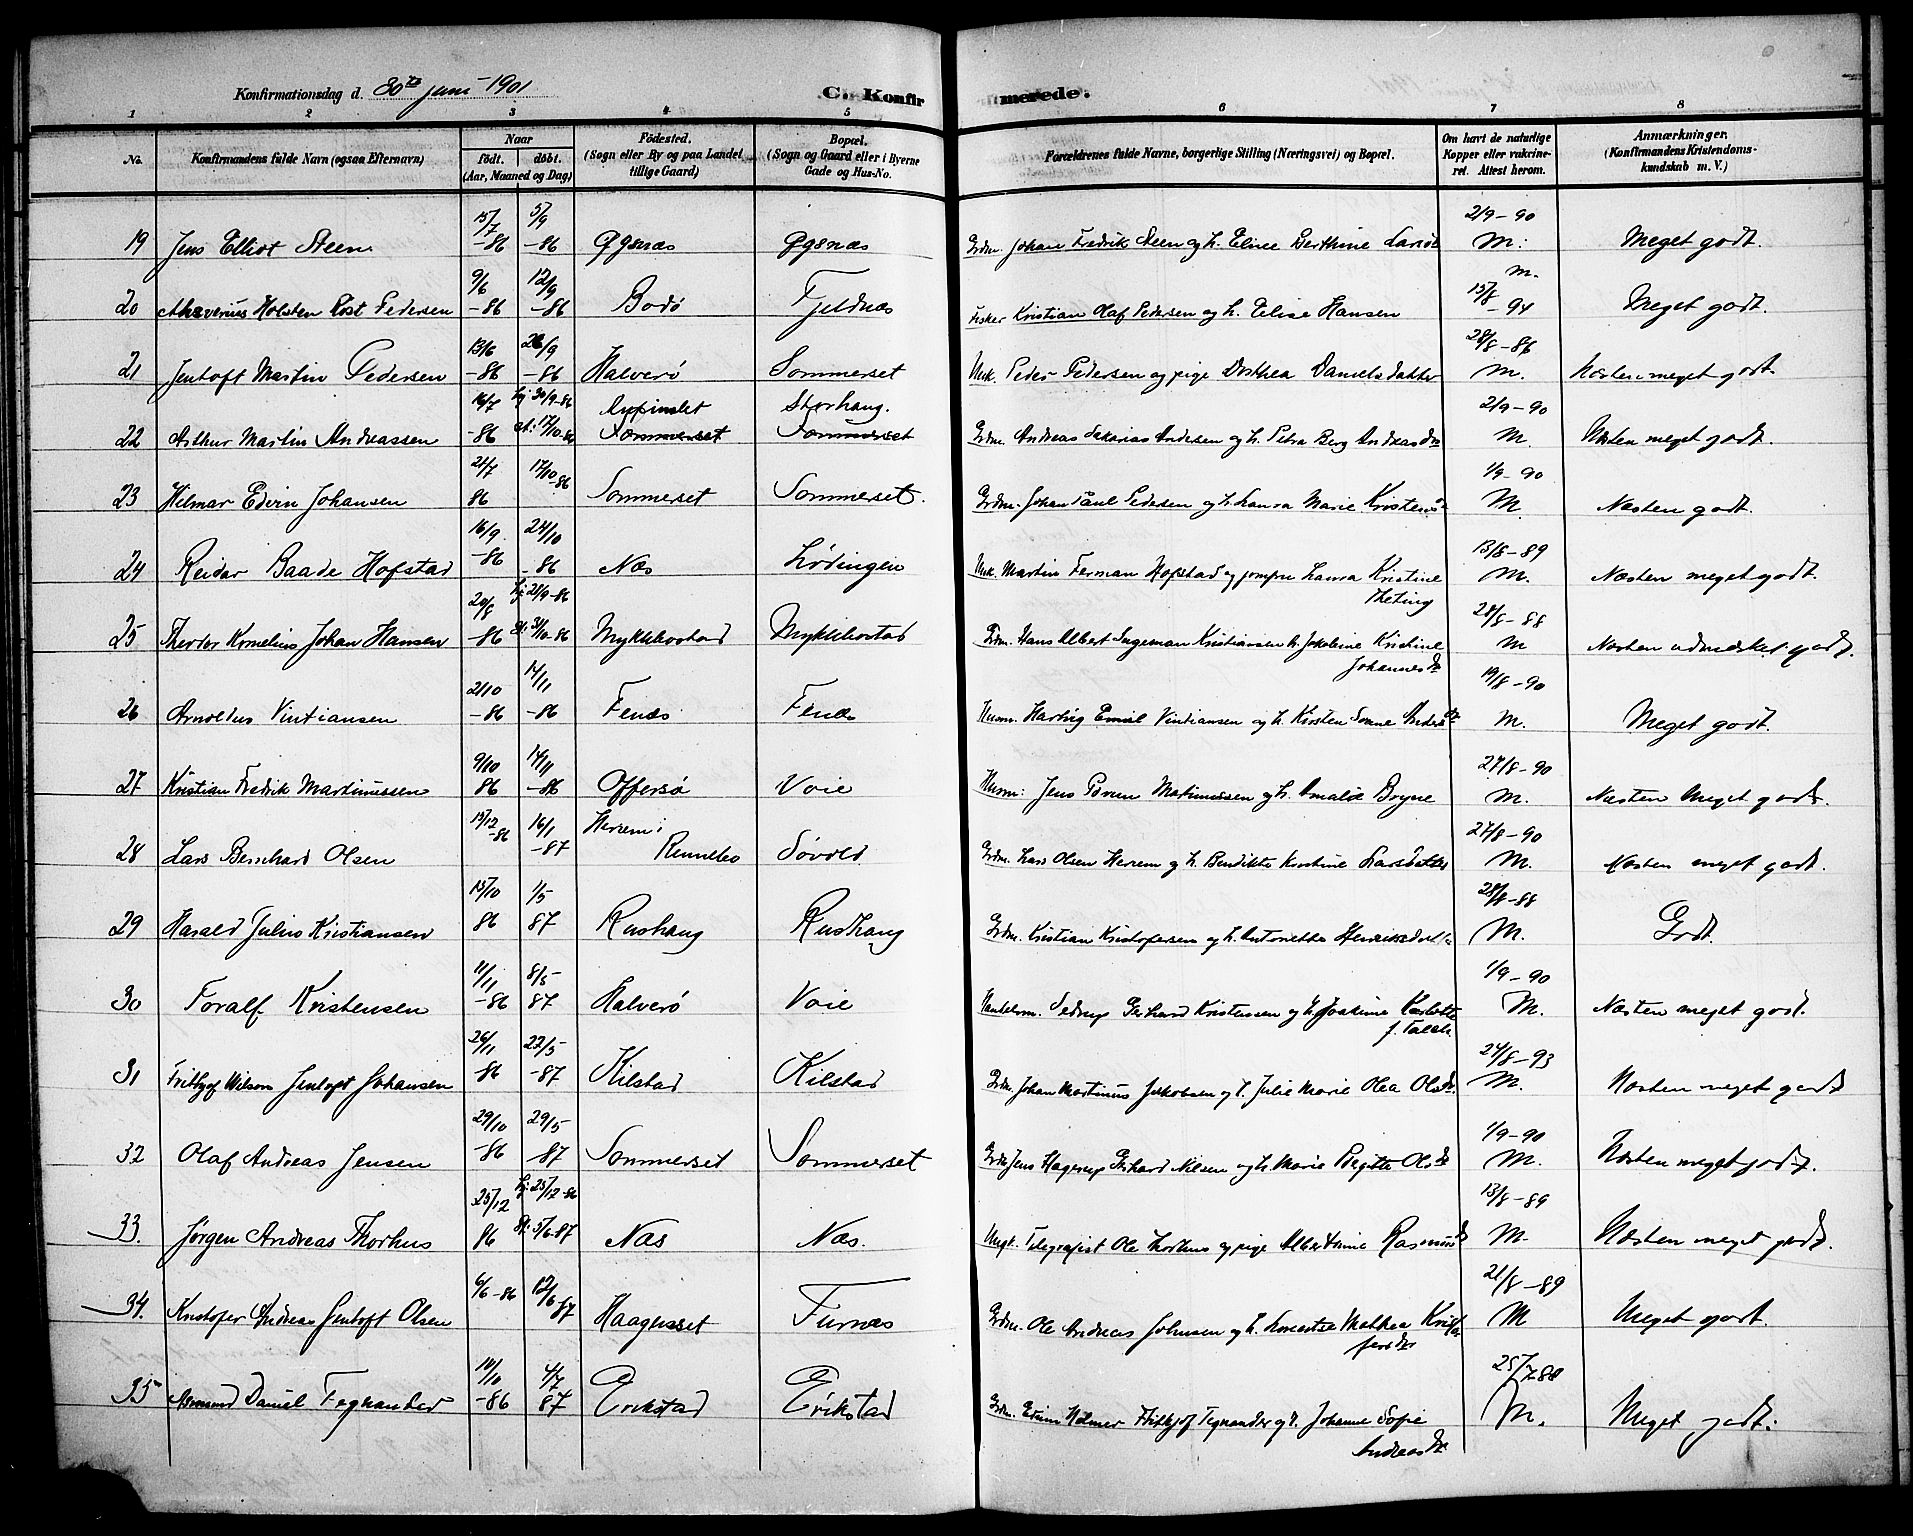 Konfirmationsdag d. 30te juni 1901
C. Konfirmerede.
1 2 3 4 5 6 7 8
No. Konfirmandens fulde Navn (ogsaa Efternavn) Naar født. døbt. (Aar, Maaned og Dag) Fødested. (Sogn eller By og paa Landet tillige Gaard) Bopæl. (Sogn og Gaard eller i Byerne Gade og Hus-No. Forældrenes fulde Navne, borgerlige Stilling (Næringsvei) og Bopæl. Om havt de naturlige Kopper eller vakcineret. Attest herom. Anmærkninger. (Konfirmandens Kristendomskundskab m. V.)
19 Jens Elliot Steen 15/7 -86 5/9 -86 Ågsnæs Ågsnæs Grdm. Johan Fredrik Steen og h. Elise Berthine 2/9-90 M. Meget godt.
20 Holsten Rost Pedersen 9/6 -86 12/9 -86 Bodø Fjeldnæs Fisker Kristian Olaf Pedersen og h. Elise Hansen m. 15/8 -94 Meget godt.
21 Jentoft Martin Pedersen 13/6 -86 26/9 -86 Halverø Sommerset Unk. Peder Pedersen og pige Dorthea Danielsdatter 28/8-86 M. Næsten meget godt.
22 Arthur Martin Andreassen 16/7 -86 hj. 20/9-86 st: 17/10-86 Sommerset Storhaug. Sommerset Grdm. Andreas Sakarias Andersen og h. Petra Berg Andreasdr 2/9-90 M. Næsten meget godt.
23 Hilmar Edvin Johansen 21/7 86 17/10 86 Sommerset Sommerset. Grdm. Johan Paul Pedersen og h. Laura Marie Kristens 1/9-90 M. Næsten godt.
24 Reidar Baade Hofstad 16/9 -86 24/10 -86 Næs Lødingen Unk. Martin Ferman Hofstad og jomfru Laura Kristine Theting 13/8-89 M. Næsten meget godt.
25 Theodor Kornelius Johan Hansen 20/8 -86 hj. 21/9-86 st: 31/10-86 Myklebostad Myklebostad Grdm. Hans Albert Ingeman Kristiansen h. Jakobine Kristine Johannesdr 28/8-88 M Næsten udmærket godt.
26 Arnoldus Vintiansen 2/10 -86 14/11 -86 Fenes Fenes Husm. Hartvig Emil Vintiansen og h. Kirsten 19/8-90 M. Meget godt.
27 Kristian Fredrik Martinussen 9/10 86 14/11 -86 Offersø Voie Husm: Jens Martinussen og h. Amalie Bryne 27/8-90 M. Næsten Meget godt.
28 Lars Bernhard Olsen 15/12 -86 16/1 -87 Herrem i Rennebo Søvold Grdm. Lars Olsen Herrem og h. Bendikte Kirstine Larsdatter 27/8-90 M. Næsten meget godt.
29 Harald Julius Kristiansen 15/10 86 1/5 87 Rushaug Rushaug Grdm. Kristian Kristofersen og h. Antonette 28/8-88 M. Godt.
30 Toralf Kristensen 11/11 -86 8/5 87 Halverø Voie Handelsm. Sedrup Gerhard Kristensen og h. Joakime Karlotte 1/9-90 M. Næsten meget godt.
31 Frithjof Wilson Jentoft Johansen 26/11 86 22/5 -87 Kilstad Kilstad Grdm. Johan Martinus Jakobsen og h. Julie Marie Olea Olsdr. 24/8-93 M. Næsten meget godt
32 Olaf Andreas Jensen 29/10 -86 29/5 -87 Sommerset Sommerset Grdm Jens Hagerup Gerhard Nilsen og h. Marie Birgitte Olsdr 1/9-90 M. Næsten meget godt.
33. Jørgen Andreas Thorhus 25/12 86 hj: 25/12-86 st: 5/6-87 Næs Næs. Ungk. Telegrafist Ole Thorhus og pige Albertine Rasmusdr 13/8-89 M. Næsten meget godt.
34. Kristofer Andreas Jentoft Olsen 6/6-86 12/6-87 Haagensset Furnæs Grdm. Ole Andreas Johnsen og h. Mathea Kristofersdr 21/8-89 M Meget godt.
35 Asmund Daniel Tegnander 10/10 -86 4/7 87 Erikstad Erikstad Grdm. Edvin Holmer Frithjof Tegnander og h. Johanne Sofie Andreasdr 25/7-88 M. Meget godt.